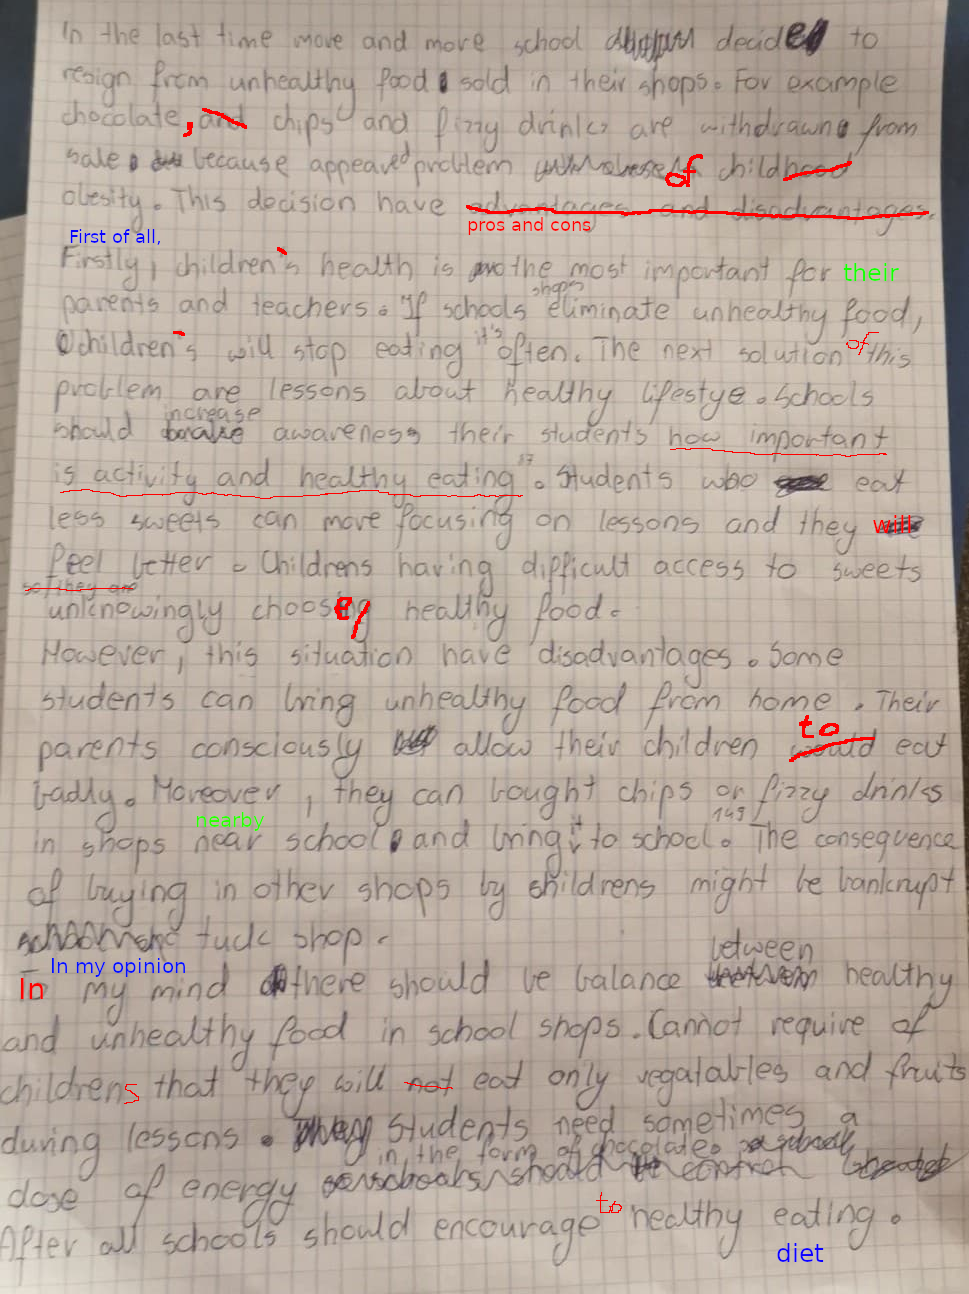 In the last time more and more school decided to
resign from unhealthy food sold in their shops. For example
chocolate, and chips and fizzy drinks are withdrawn from
sale because appeared problem of childhood
obesity. This decision have advantages and disadvantages.
pros and cons
First of all,
Firstly, children's health is the most important for their
shops
parents and teachers. If schools eliminate unhealthy food,
children's will stop eating it's often. The next solution of this
problem are lessons about healthy lifestye. Schools
increase
should awareness their students how important
is activity and healthy eating. Students who eat
87
less sweets can more focusing on lessons and they will
feel better. Childrens having difficult access to sweets
so they are
unknowingly choosing e healthy food.
However, this situation have disadvantages. Some
students can bring unhealthy food from home. Their
to
parents consciously allow their children would eat
badly. Moreover, they can bought chips or fizzy drinks
nearby
149
in shops near school and bring it to school. The consequence
of buying in other shops by childrens might be bankrupt
tuck shop.
In my opinion
between
In my mind there should be balance healthy
and unhealthy food in school shops. Cannot require of
childrens that they will not eat only vegatables and fruits
during lessons. Students need sometimes a
in the form of chocolate.
dose of energy schools should control
After all schools should encourage to healthy eating.
diet